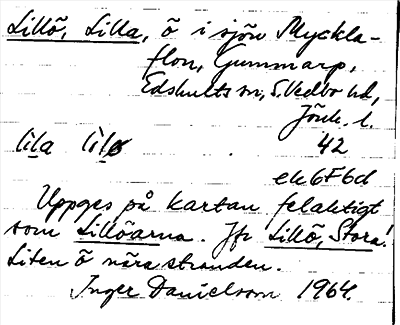 Lillö, Lilla, ö i sjön Myckla-
flon, Gummarp,
Edshults sn, S. Vedbo hd,
Jönk. l.
lila lilø 42
ek 6F6d
Uppges på kartan felaktigt
som Lillöarna. Jfr Lillö, Stora!
Liten ö nära stranden.
Inger Danielsson 1964.